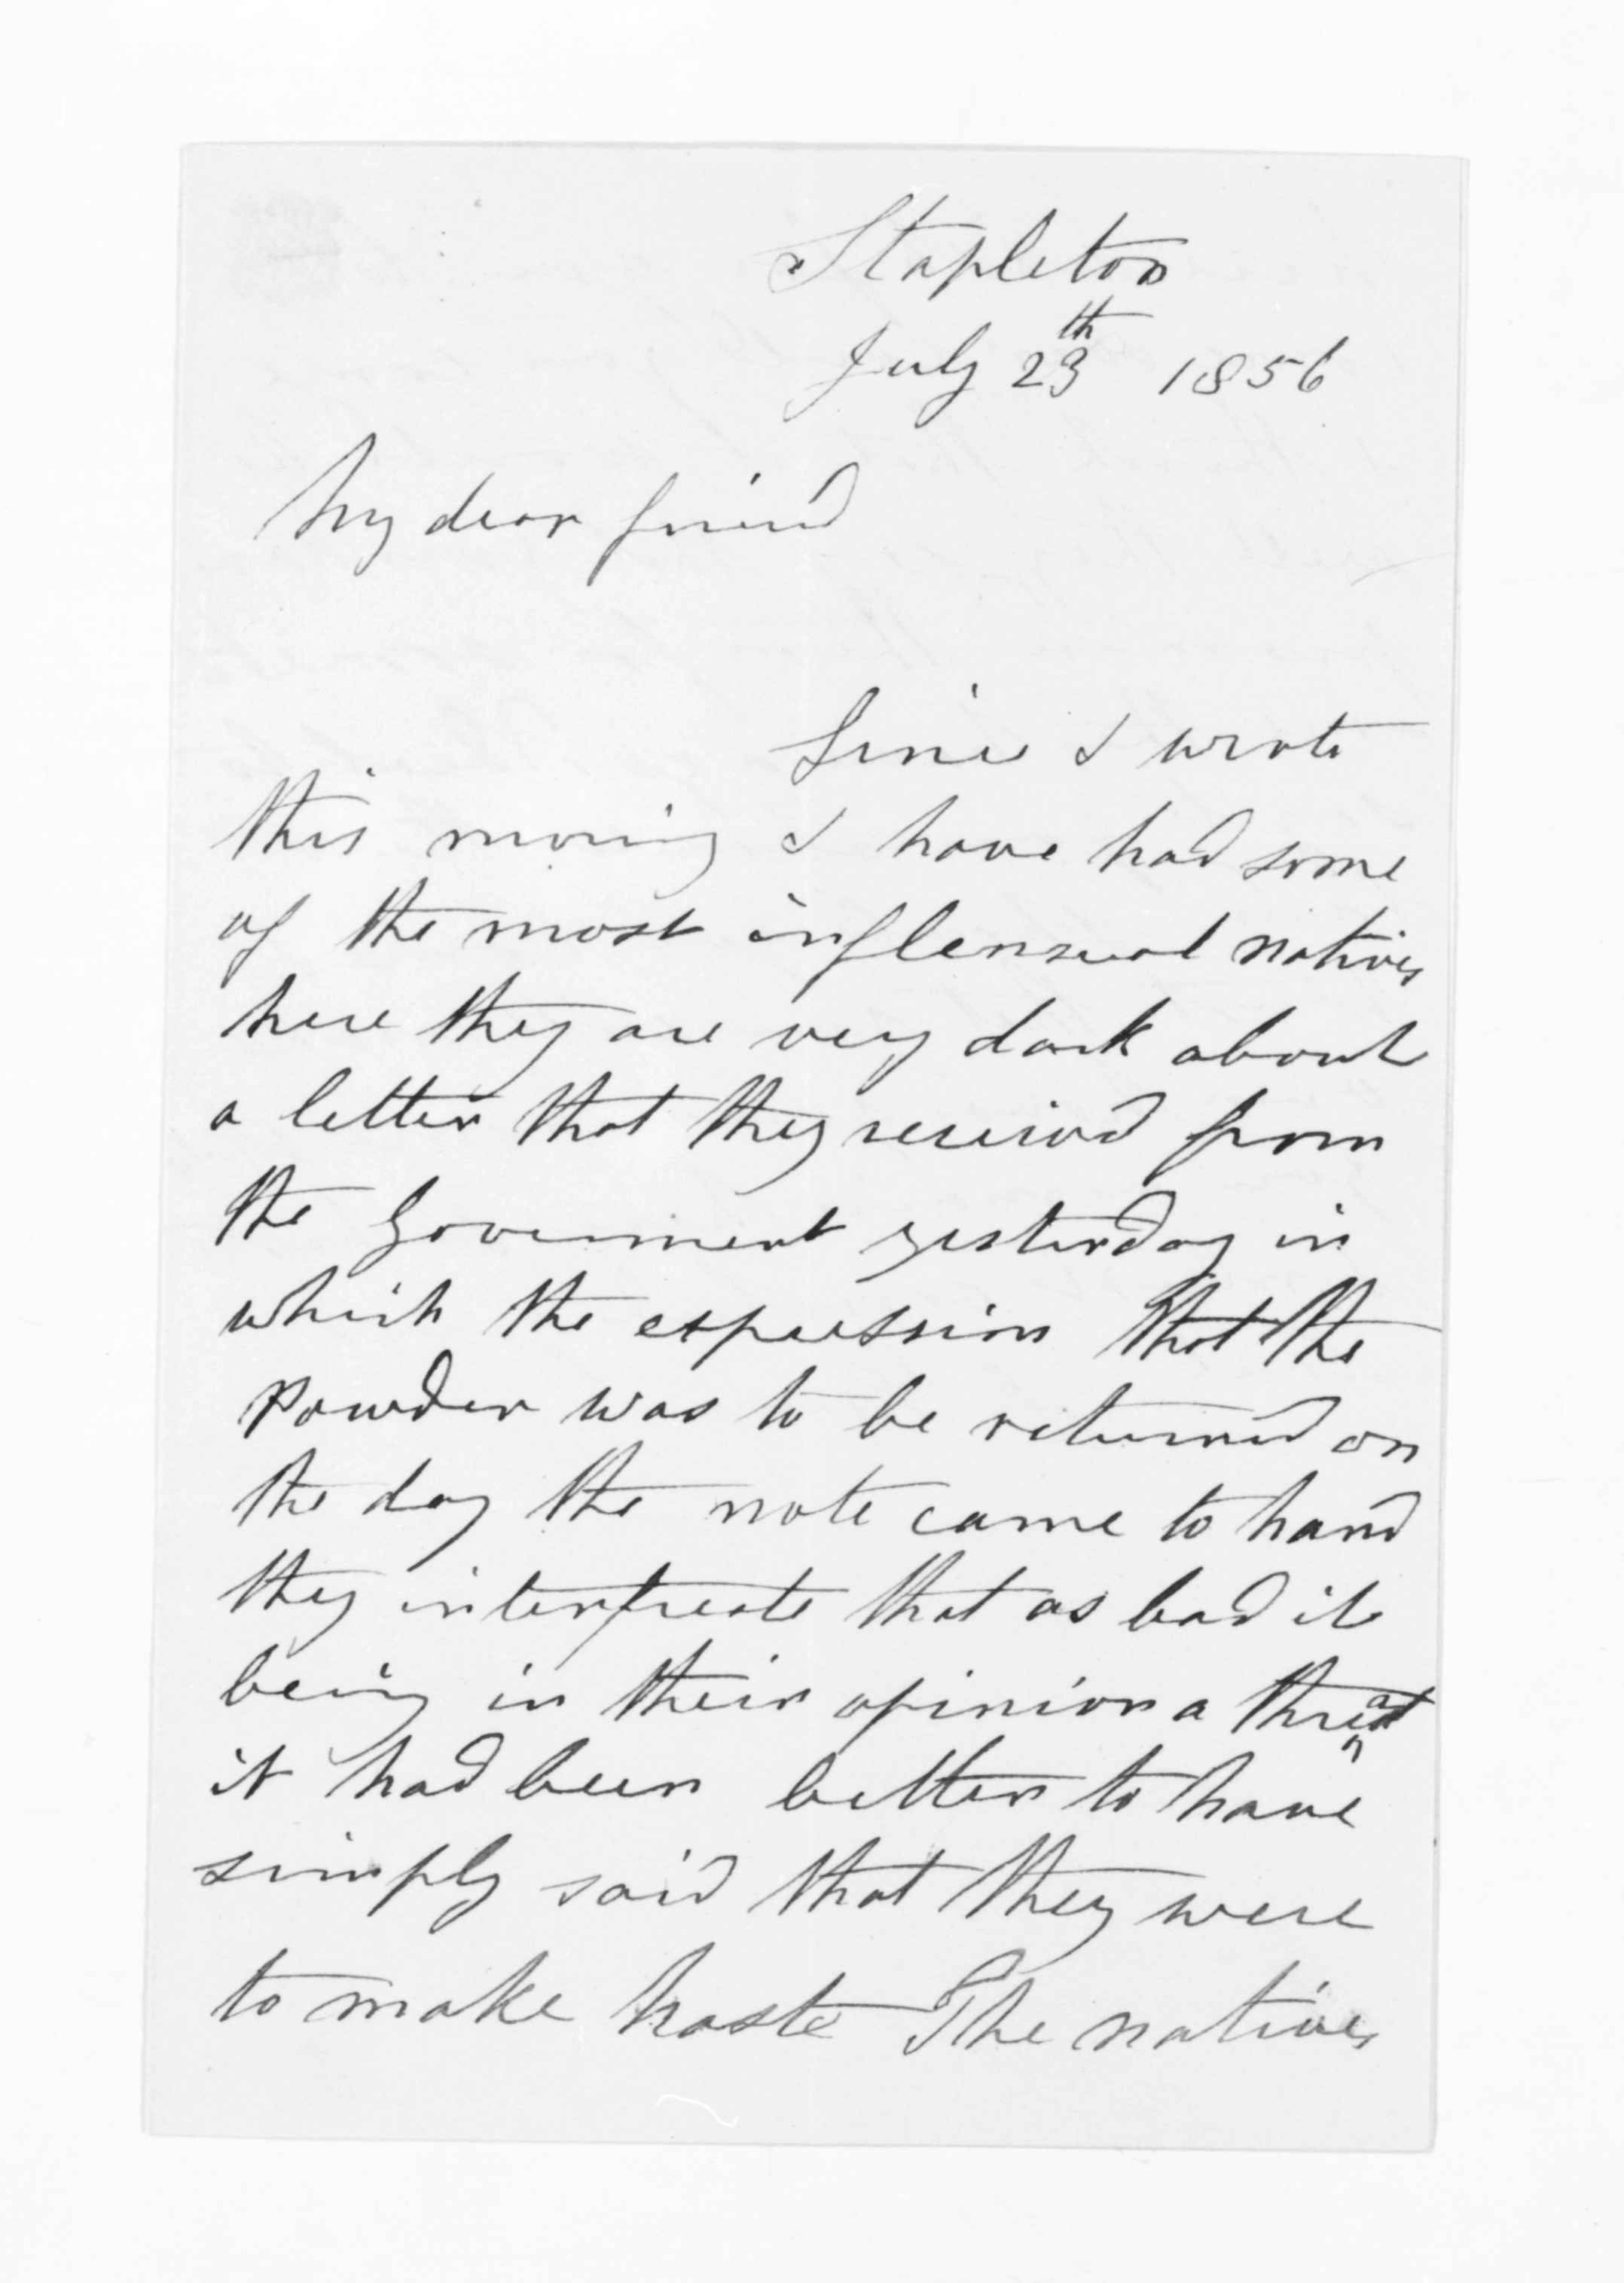 Stapleton
July 23th 1856
My dear friend
Since I wrote
this moring I have had some
of the most inflenseual natives
here they are very dark about
a letter that they received from
the Government yesterday in
which the expression that the
Powder was to be returned on
the day the note came to hand
they interpreate that as bad it
being in their opinion a threat
it had been better to have
simply said that they were
to make haste The natives